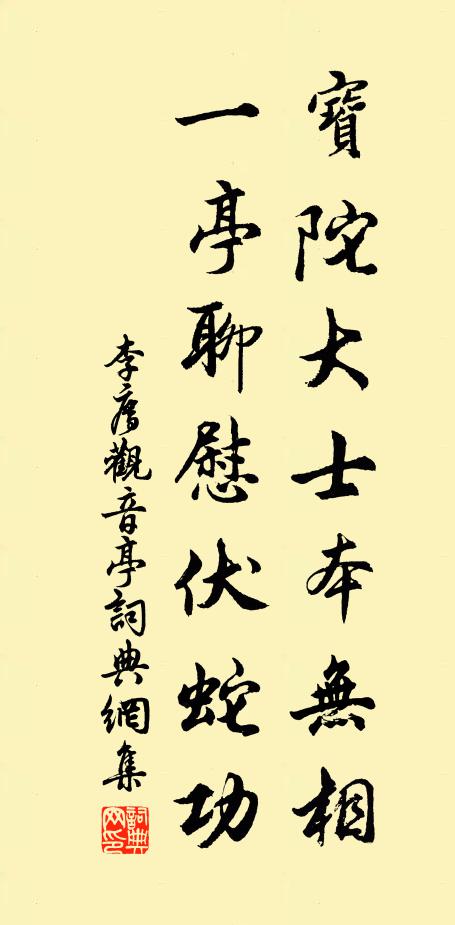 寶陀大士本無相
一亭聊慰伏蛇功
李觀音亭詞典網集
詞典
网印